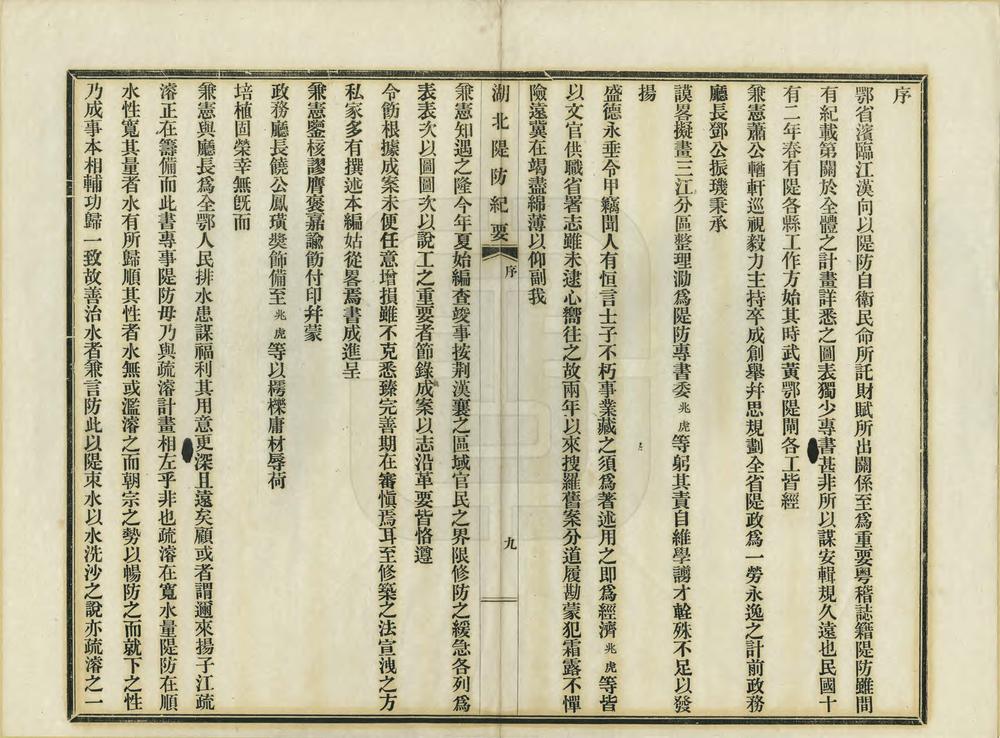 序
鄂省濱臨江漢向以隄防自衛民命所託財賦所出關係至爲重要粵稽誌籍隄防雖間
有紀載第關於全體之計畫詳悉之圖表獨少專書甚非所以謀安輯規久遠也民國十
有二年春有隄各縣工作方始其時武黃鄂隄閘各工皆經
兼憲蕭公輶軒巡視毅力主持卒成創舉幷思規劃全省隄政爲一勞永逸之計前政務
廳長鄧公振璣秉承
謨畧擬畫三江分區整理泐爲隄防專書委兆虎等躬其責自維學譾才輇殊不足以發
揚
盛德永垂令甲竊聞人有恒言士子不朽事業藏之須爲著述用之即爲經濟兆虎等皆
以文官供職省署志雖未逮心嚮往之故兩年以來搜羅舊案分道履勘蒙犯霜露不憚
險遠冀在竭盡綿薄以仰副我
湖北隄防紀要 序 九
兼憲知遇之隆今年夏始編查竣事按荆漢襄之區域官民之界限修防之緩急各列爲
表表次以圖圖次以說工之重要者節錄成案以志沿革要皆恪遵
令飭根據成案未便任意增損雖不克悉臻完善期在審愼焉耳至修築之法宣洩之方
私家多有撰述本編姑從畧焉書成進呈
兼憲鑒核謬膺褒嘉諭飭付印幷蒙
政務廳長饒公鳳璜獎飾備至兆虎等以樗櫟庸材辱荷
培植固榮幸無旣而
兼憲與廳長爲全鄂人民排水患謀福利其用意更深且遠矣顧或者謂邇來揚子江疏
濬正在籌備而此書專事隄防毋乃與疏濬計畫相左乎非也疏濬在寬水量隄防在順
水性寬其量者水有所歸順其性者水無或濫濬之而朝宗之勢以暢防之而就下之性
乃成事本相輔功歸一致故善治水者兼言防此以隄束水以水洗沙之說亦疏濬之一